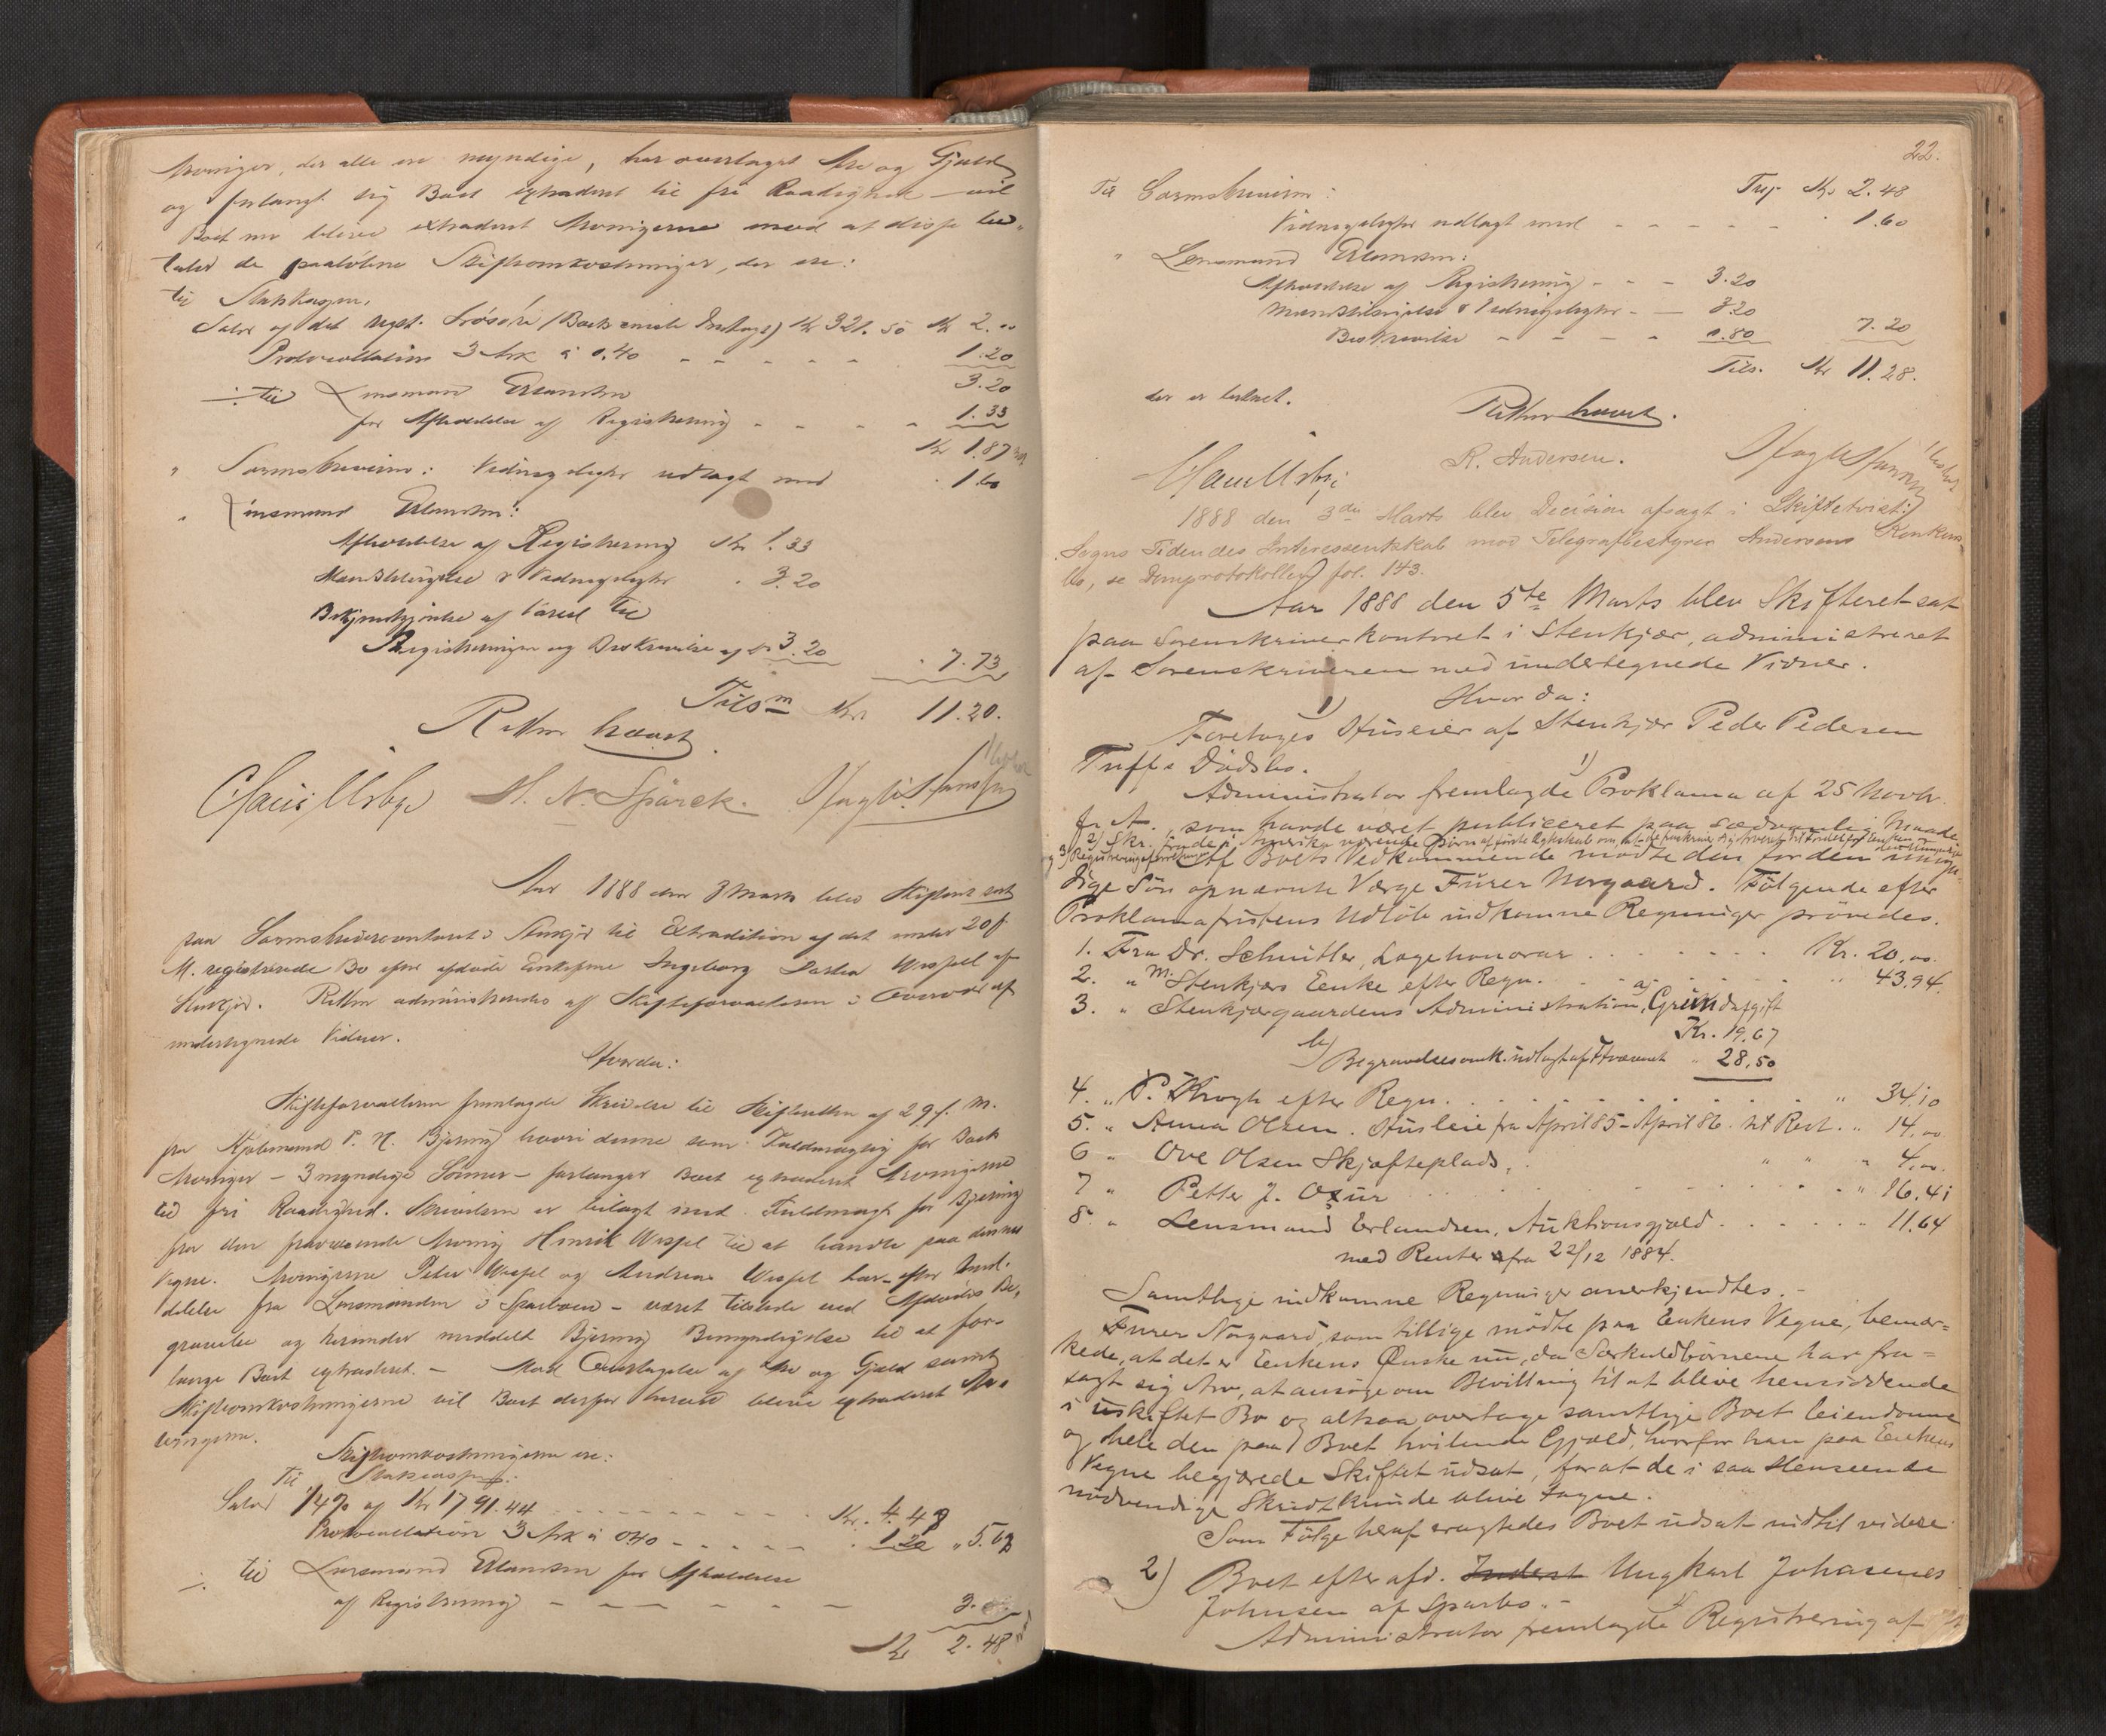 Arvinger, der alle ere myndige, har overtaget Arv og Gjæld
og forlangt sig Boet extraderet til fri Raadighed – vil
Boet nu blive extraderet Arvingerne mod at disse be-
taler de paaløbne Skifteomkostninger, der ere:
til Statskassen,
Salær af det regst. Løsøre (Boets eneste Indtægt) Kr 321.50 Kr 2.00
Protocollation 3 Ark à 0.40 - - - - - 1.20
3.20
÷ til Lensmand Erlandsen
for Afholdelse af Registrering - - - - 1.33
Kr 1.87
" Sorenskriveren: Vidnegodtgj. udlagt med - 1.60
" Linsmand Erlandsen:
Afholdelse af Registrering Kr 1.33
Mandstilsigelse & Vidnegodtgj. " 3.20
Bekjendtgjørelse af Varsel til
Registreringen og Beskrivelse af do 3.20 - 7.73
Tilsm Kr 11.20.
Retten hævet.
Claus Urbye M. N. Spärck.
Aar 1888 den 3 Marts blev Skifteret sat
paa Sorenskrivercontoret i Stenkjær til Extradition af det under 20 f.
M. registrerede Bo efter afdøde Enkefrue Ingeborg Wessel af
Stenkjær. Retten administreredes af Skifteforvalteren i Overvær af
undertegnede Vidner.
Hvorda:
Skifteforvalteren fremlagde Skrivelse til Skifteretten af 29 f. M.
fra Kjøbmand P. N. Bjerring hvori denne som Fuldmægtig for Boets
Arvinger – 3 myndige Sønner – forlanger Boet extraderet Arvingerne
til fri Raadighed. Skrivelsen er bilagt med Fuldmagt for Bjerring
fra den fraværende Arving Henrik Wessel til at handle paa dennes
Vegne. Arvingerne Peter Wessel og Andreas Wessel har – efter Med-
delelse fra Lensmanden i Sparboen – været tilstede ved Afdødes Be-
gravelse og herunder meddelt Bjerring Bemyndigelse til at for-
lange Boet extraderet. – Mod Overtagelse af Arv og Gjæld samt
Skifteomkostningerne vil Boet derfor herved blive extraderet Ar-
vingerne.
Skifteomkostningerne ere:
Til Statskassen:
Salær 1/4 % af Kr 1791.44 - - - - Kr. 4.48
Protocollation 3 Ark à 0.40 - - - - - 1.20 " 5.68
÷ til Lensmand Erlandsen for Afholdelse
af Registrering - - - - - - 3.
Kr 2.48
22.
Trsp. Kr 2.48
Til Sorenskriveren:
Vidnegodtgj. udlagt med - - - - - 1.60
" Lensmand Erlandsen:
Afholdelse af Registrering - - - 3.20
Mandstilsigelse & Vidnegodtgj. - - 3.20
Beskrivelse - - - - 0.80 7.20
Tils. Kr 11.28.
der er betalt.
Retten hævet.
Claus Urbye R. Andersen.
1888 den 3die Marts blev Decision afsagt i Skiftetvist:
Sogns Tidendes Interessentskab mod Telegrafbestyrer Andersens Konkurs-
bo, se Domprotokollen fol. 143.
Aar 1888 den 5te Marts blev Skifteret sat
paa Sorenskriverkontoret i Stenkjær, administreret
af Sorenskriveren med undertegnede Vidner.
Hvorda:
1)
Foretoges Huseier af Stenkjær Peder Pedersen
Tufts Dødsbo.
Administrator fremlagde 1) Proklama af 25 Novbr.
f. A., som havde været publiceret paa sædvanlig Maade
2) Skr. fra de i Amerika værende Børn af første Ægteskab om, at de fraskriver sig Arveret til Fordel for Enken
og 3) Registreringsforretning
Af Boets Vedkommende mødte den for den umyn-
dige Søn opnævnte Værge Furer Norgaard. Følgende efter
Proklamafristens Udløb indkomne Regninger prøvedes.
1. Fra Dr. Schnitler, Lægehonorar . . . . . . . Kr. 20,00.
2. " M. Stenkjærs Enke efter Regn. . . . . . " 43.94.
3. " Stenkjærgaardens Administration, a) Grundafgift
Kr. 19.67
b) Begravelsesomk. udlagt af " 28,50
4. " P. Krogh efter Regn. . . . . . . . . " 34,10
5. " Anna Olsen. Husleie fra April 85 – April 86. Rest. . " 14,00
6 " Ove Olsen Skjefteplads, . " " " 4,00.
7 " Petter J. Oxur . . . . . . . . " 16.41
8. " Lensmand Erlandsen, Auktionsgjæld . . . . . . " 11.64
med Renter fra 22/12 1884.
Samtlige indkomne Regninger anerkjendtes. –
Furer Norgaard, som tillige mødte paa Enkens Vegne, bemær-
kede, at det er Enkens Ønske nu, da Særkuldbørnene har fra-
sagt sig Arv, at ansøge om Bevilling til at blive hensiddende
i uskiftet Bo og altsaa overtage samtlige Boets Eiendomme
og hele den paa Boet hvilende Gjæld, hvorfor han paa Enkens
Vegne begjærede Skiftet udsat, for at de i saa Henseende
nødvendige Skridt kunde blive tagne.
Som Følge heraf eragtedes Boet udsat indtil videre
2) Boet efter afd. Inderst Ungkarl Johannes
Johnsen af Sparbo. –
Administrator fremlagde 1) Registrering af